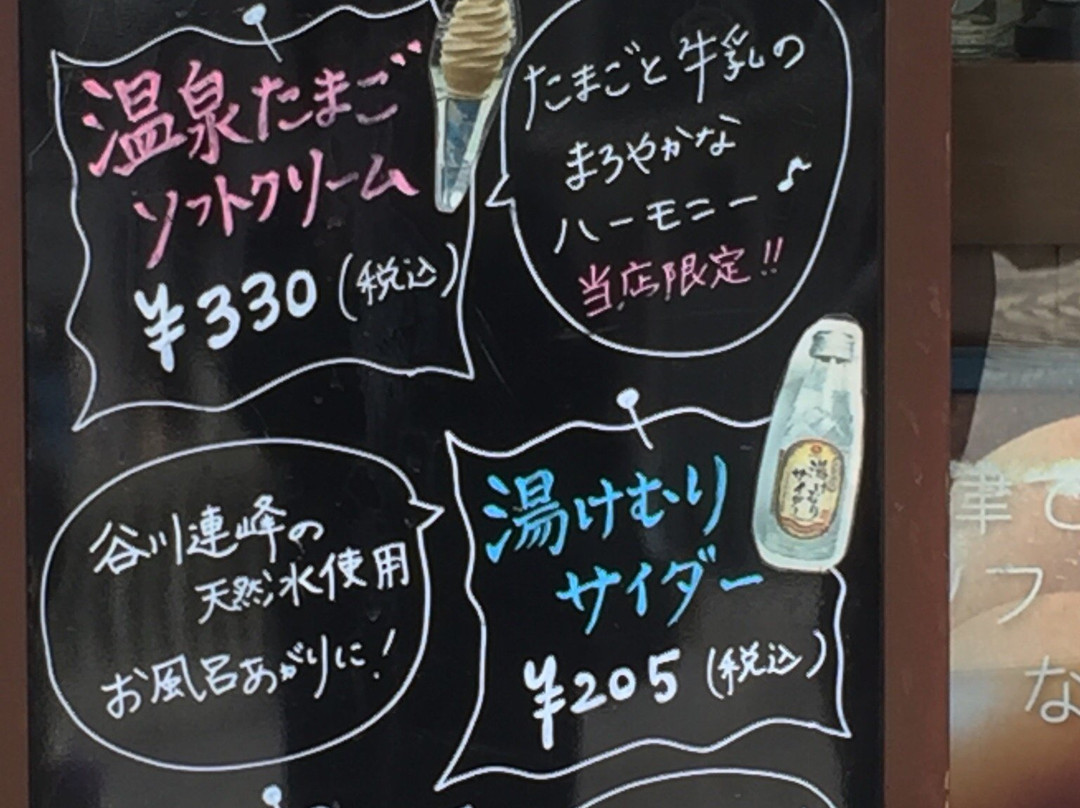 温泉たまご
ソフトクリーム
¥330(税込)
たまごと牛乳の
まろやかな
ハーモニー♪
当店限定!!
湯けむり
サイダー
¥205(税込)
湯けむり
サイダー
谷川連峰の
天然水使用
お風呂あがりに!
な